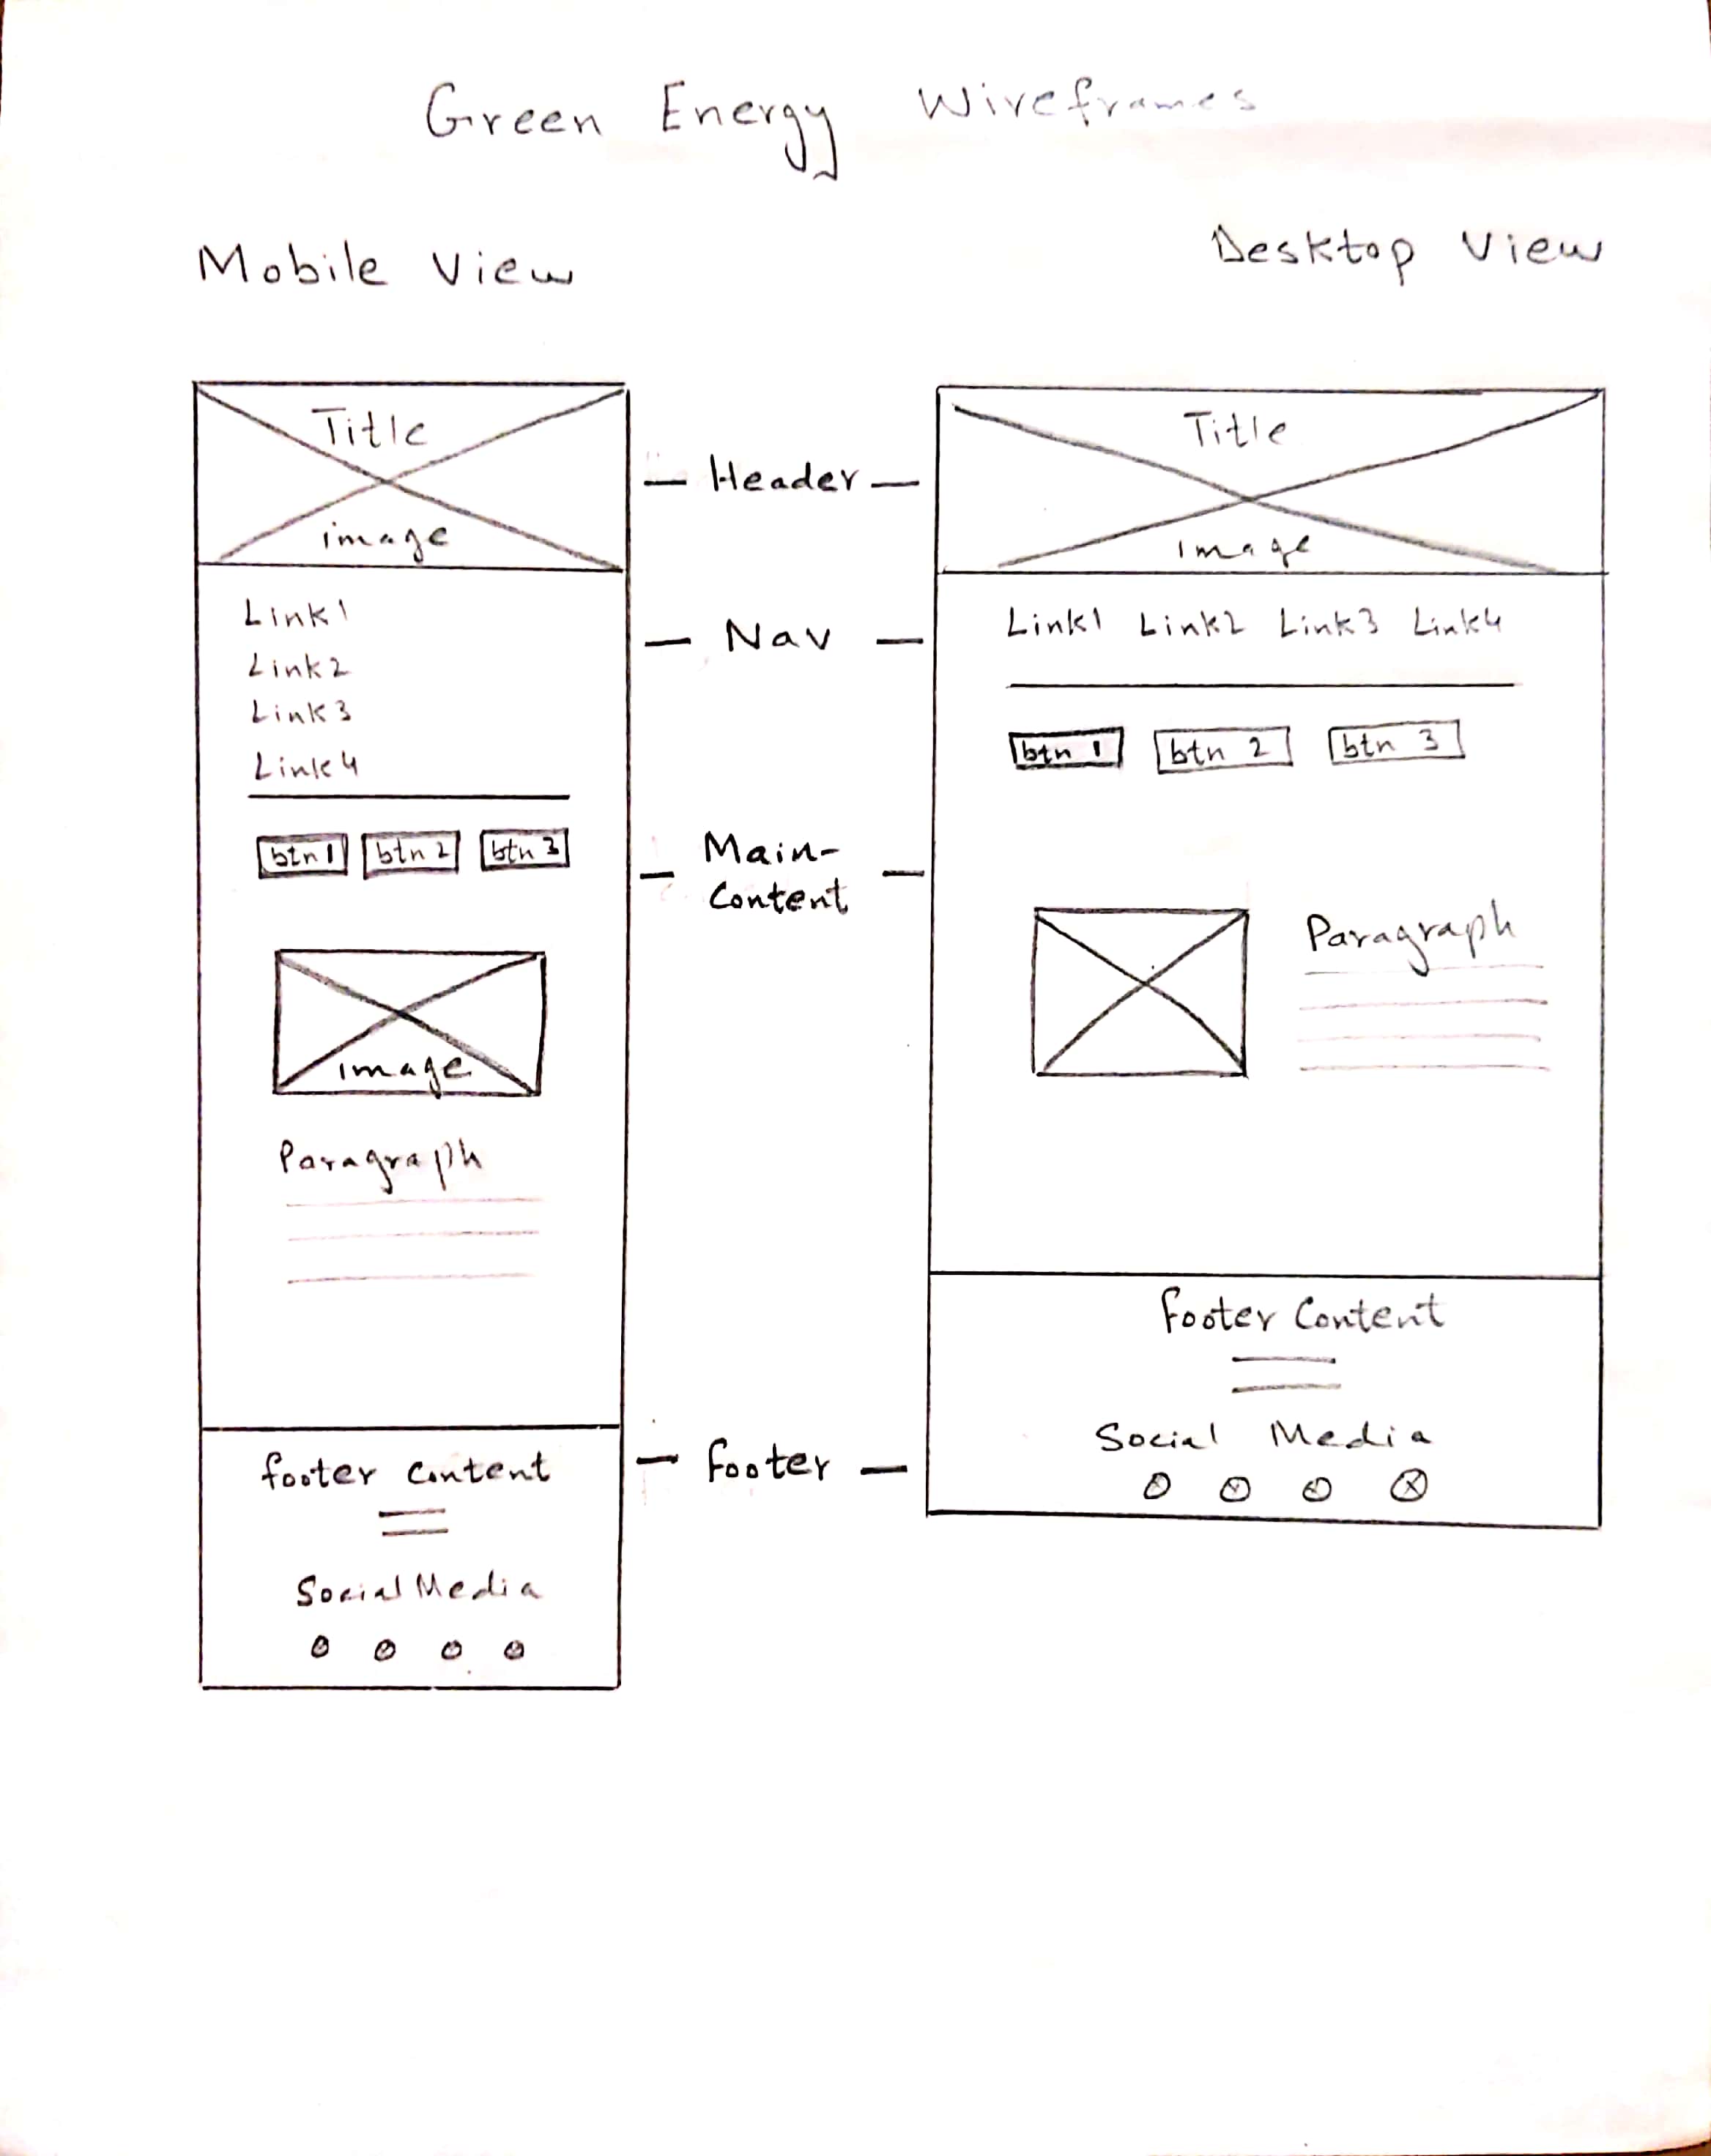 Green Energy Wireframes
Mobile View
Desktop View
Title
image
Link1
Link2
Link3
Link4
btn 1 btn 2 btn 3
image
Paragraph
footer content
Social Media
Header
Nav
Main-
Content
footer
Title
image
Link1 Link2 Link3 Link4
btn 1 btn 2 btn 3
Paragraph
footer Content
Social Media